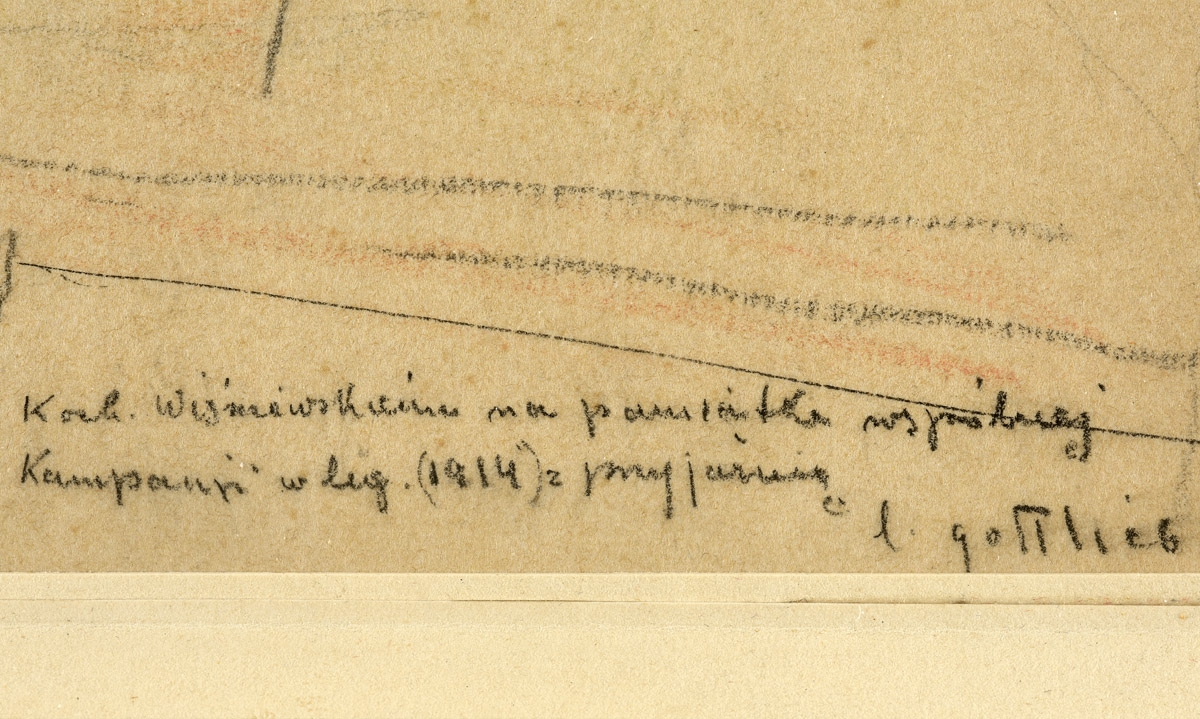 Koch. Wiśniewskiemu na pamiątkę wspólnej
Kampanji w leg. (1914) z przyjaźnią
l. gottlieb